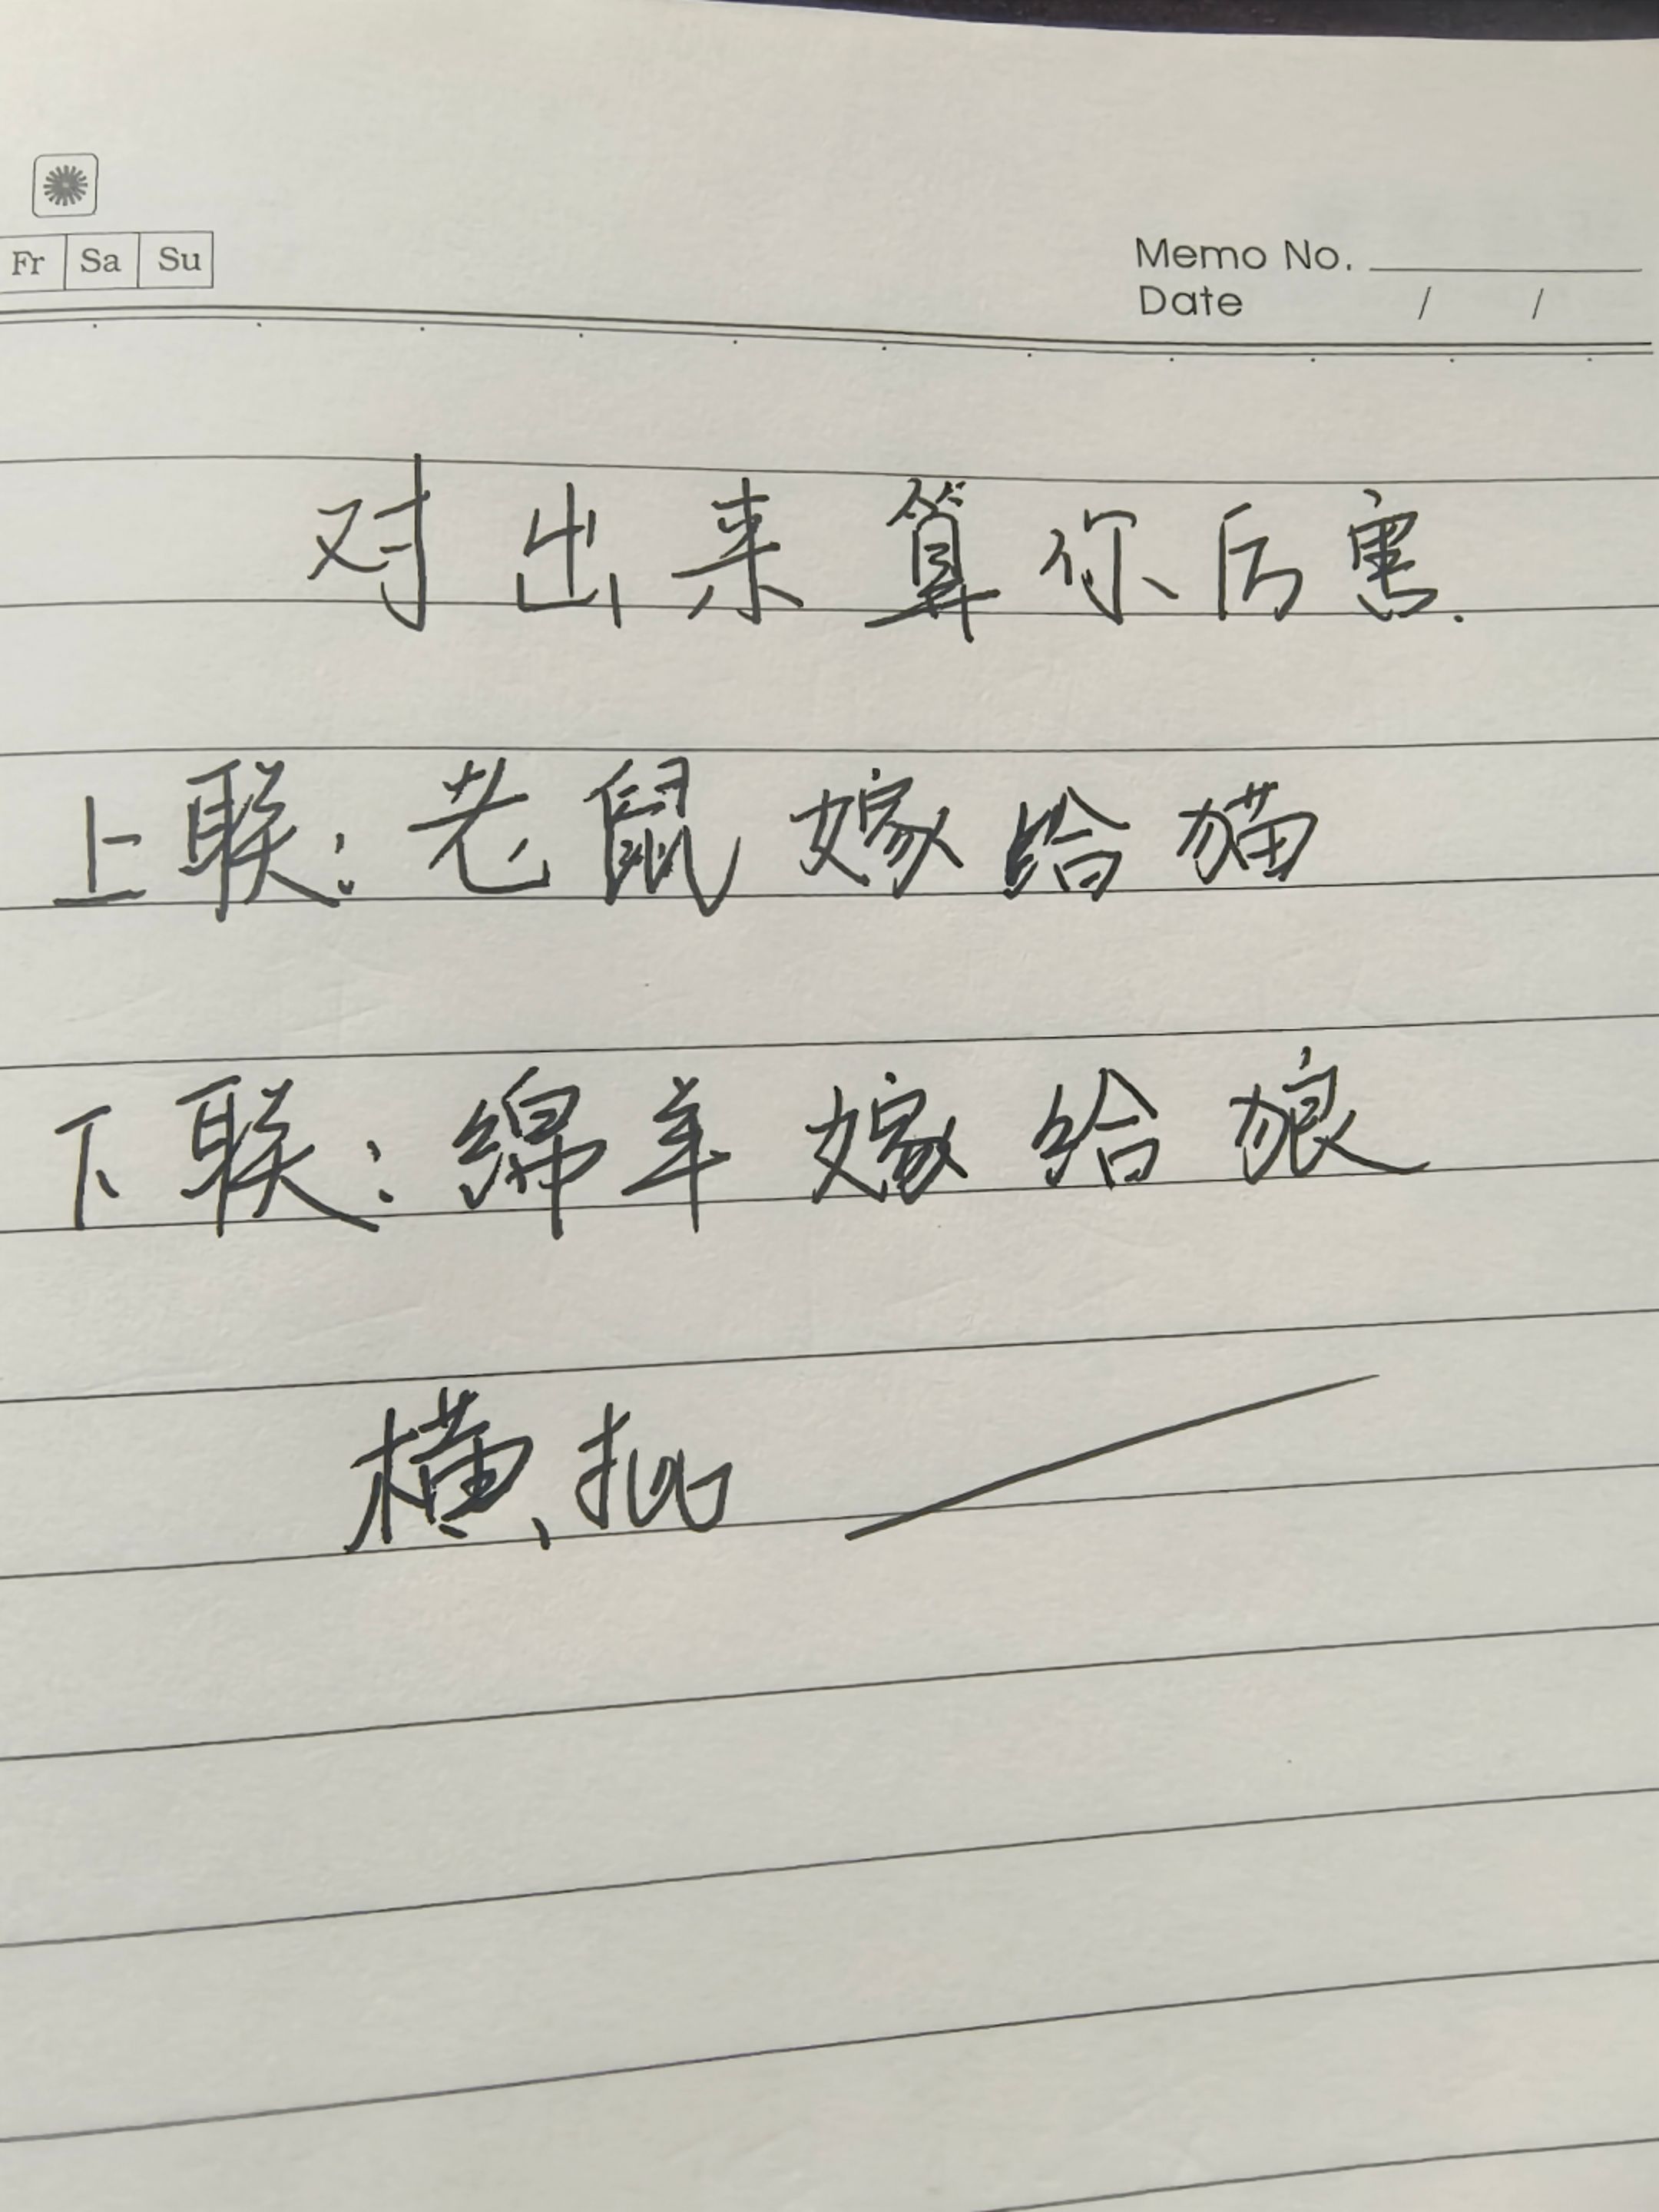 Fr Sa Su
Memo No.
Date / /
对出来算你厉害.
上联:老鼠嫁给猫
下联:绵羊嫁给狼
横批